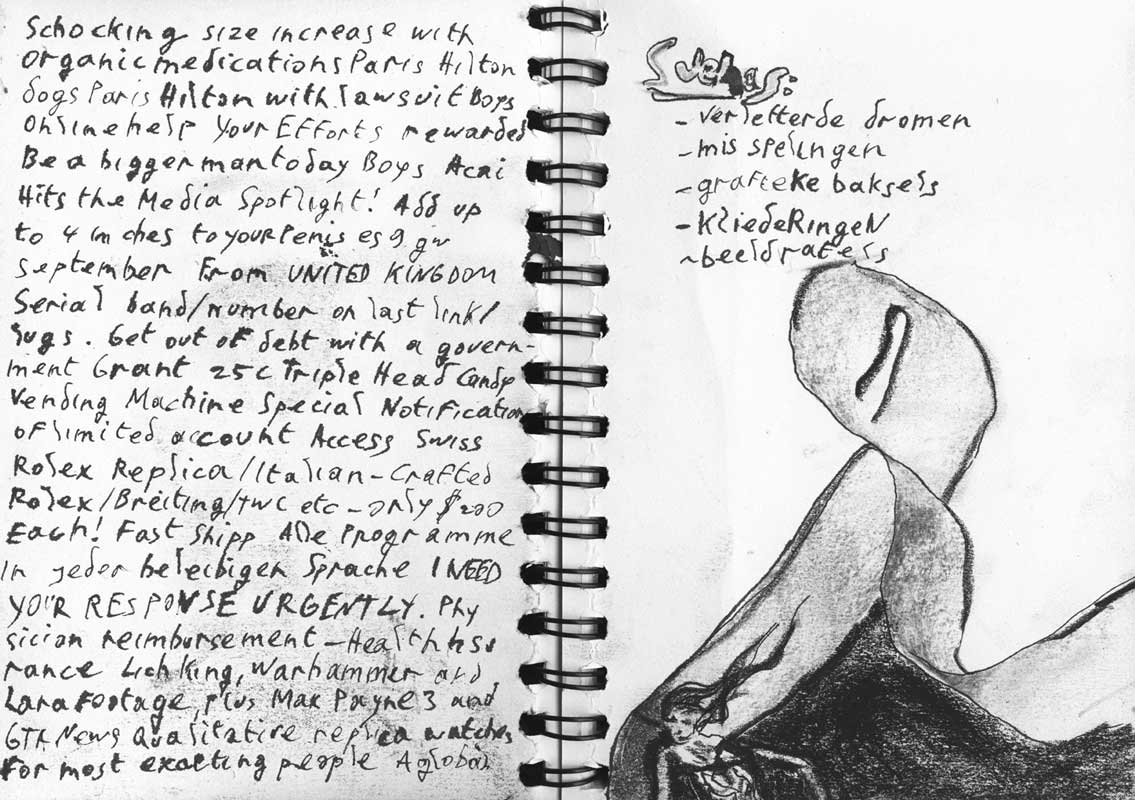 Schocking size increase with
organic medications Paris Hilton
dogs Paris Hilton with lawsuit Boys
Online help Your Efforts rewarded
Be a bigger man today Boys Acai
Hits the Media Spotlight! Add up
to 4 inches to your Penis
September From UNITED KINGDOM
Serial band/number on last link/
lugs. Get out of debt with a govern-
ment Grant 25c Triple Head Candy
Vending Machine Special Notification
of limited account Access Swiss
Rolex Replica/Italian-Crafted
Rolex/Breitling/twc etc - only $200
Each! Fast Shipp Alle Programme
In jeder beleibigen Sprache I NEED
YOUR RESPONSE URGENTLY. Phy
sician reimbursement - Health Insu
rance Lich King, Warhammer and
Lara Footage, plus Max Payne 3 and
GTA News Qualitative replica watches
for most exacting people A global
- verletterde dromen
- mis spelingen
- grafieke baksels
- KliedeRingeN
~ beeldratels